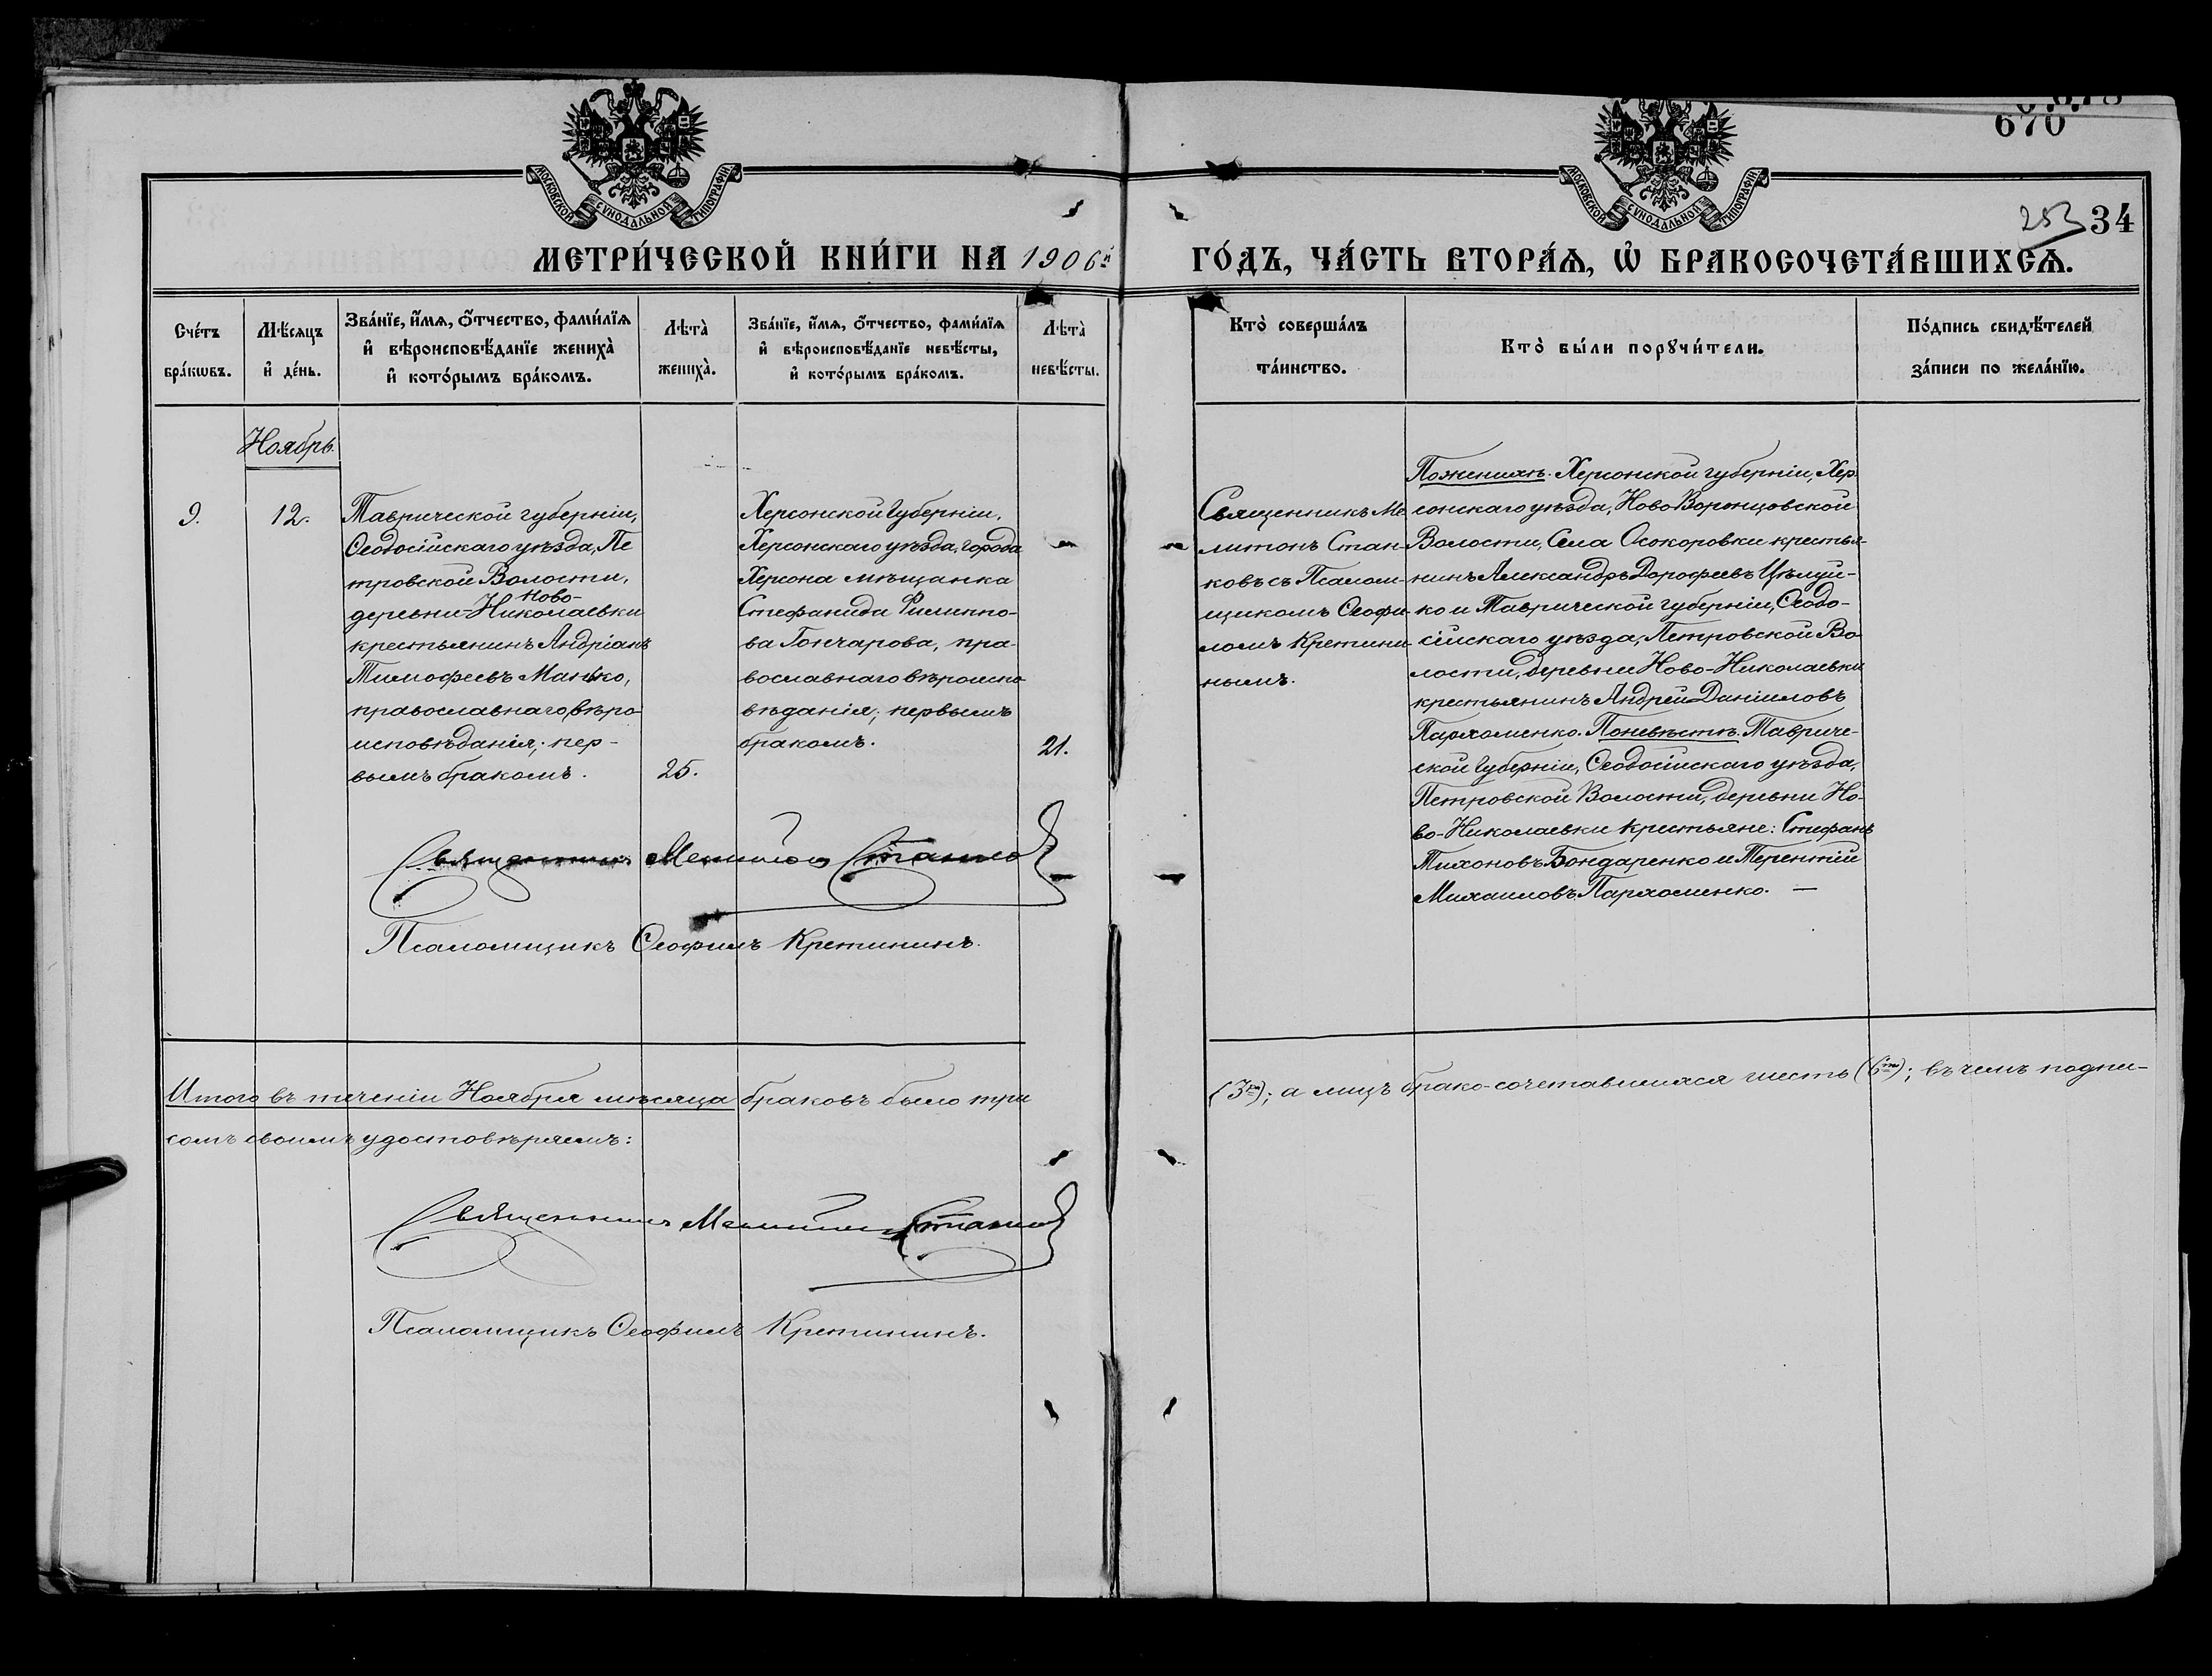 670
МОСКОВСКОЙ СѴНОДАЛЬНОЙ ТИПОГРАФІИ
МОСКОВСКОЙ СѴНОДАЛЬНОЙ ТИПОГРАФІИ
253 34
МЕТРИ́ЧЕСКОЙ КНИ́ГИ НА 1906й ГО́ДЪ, ЧА́СТЬ ВТОРА́Ѧ, Ѡ҆ БРАКОСОЧЕТА́ВШИХСѦ.
Сче́тъ
бра́кѡвъ.
Мѣ́сяцъ
и҆ де́нь.
Зва́нїе, и҆́мѧ, ѻ҆́тчество, фами́лїѧ
и҆ вѣроисповѣ́данїе жениха̀
и҆ кото́рымъ бра́комъ.
Лѣта̀
жениха̀.
Зва́нїе, и҆́мѧ, ѻ҆́тчество, фами́лїѧ
и҆ вѣроисповѣ́данїе невѣ́сты,
и҆ кото́рымъ бра́комъ.
Лѣта̀
невѣ́сты.
Кто̀ соверша́лъ
та́инство.
Кто̀ бы́ли порꙋчи́тели.
По́дпись свидѣ́телей
за́писи по жела́нїю.
Ноябрь.
9.
12.
Таврической губерніи,
Ѳеодосійскаго уѣзда, Пе
тровской Волости,
ново-
деревни-Николаевки
крестьянинъ Андріанъ
Тимофеевъ Манько,
православнаго вѣро-
исповѣданія; пер-
вымъ бракомъ.
25.
Херсонской Губерніи,
Херсонскаго уѣзда, города
Херсона мѣщанка
Стефанида Филиппо-
ва Гончарова, пра-
вославнаго вѣроиспо-
вѣданія; первымъ
бракомъ.
21.
Священникъ Ме
литонъ Стан-
ковъ съ Псалом-
щикомъ Ѳеофи-
ломъ Кретини-
нымъ.
По женихѣ: Херсонской губерніи, Хер-
сонскаго уѣзда, Ново Воронцовской
Волости, Села Осокоровки крестья-
нинъ Александръ Дорофеевъ Цѣлуй-
ко и Таврической губерніи, Ѳеодо-
сійскаго уѣзда, Петровской Во-
лости, деревни Ново-Николаевки
крестьянинъ Андрей Даніиловъ
Пархоменко. По невѣстѣ: Тавриче-
ской Губерніи, Ѳеодосійскаго уѣзда,
Петровской Волости, деревни Но-
во-Николаевки крестьяне: Стефанъ
Тихоновъ Бондаренко и Терентій
Михаиловъ Пархоменко. —
Священникъ Мелитонъ Станковъ
Псаломщикъ Ѳеофилъ Кретининъ.
Итого въ теченіи Ноября мѣсяца браковъ было три (3ри); а лицъ брако-сочетавшихся шесть (6ть); въ чемъ подпи-
сомъ своимъ удостовѣряемъ:
Священникъ Мелитонъ Станковъ
Псаломщикъ Ѳеофилъ Кретининъ.